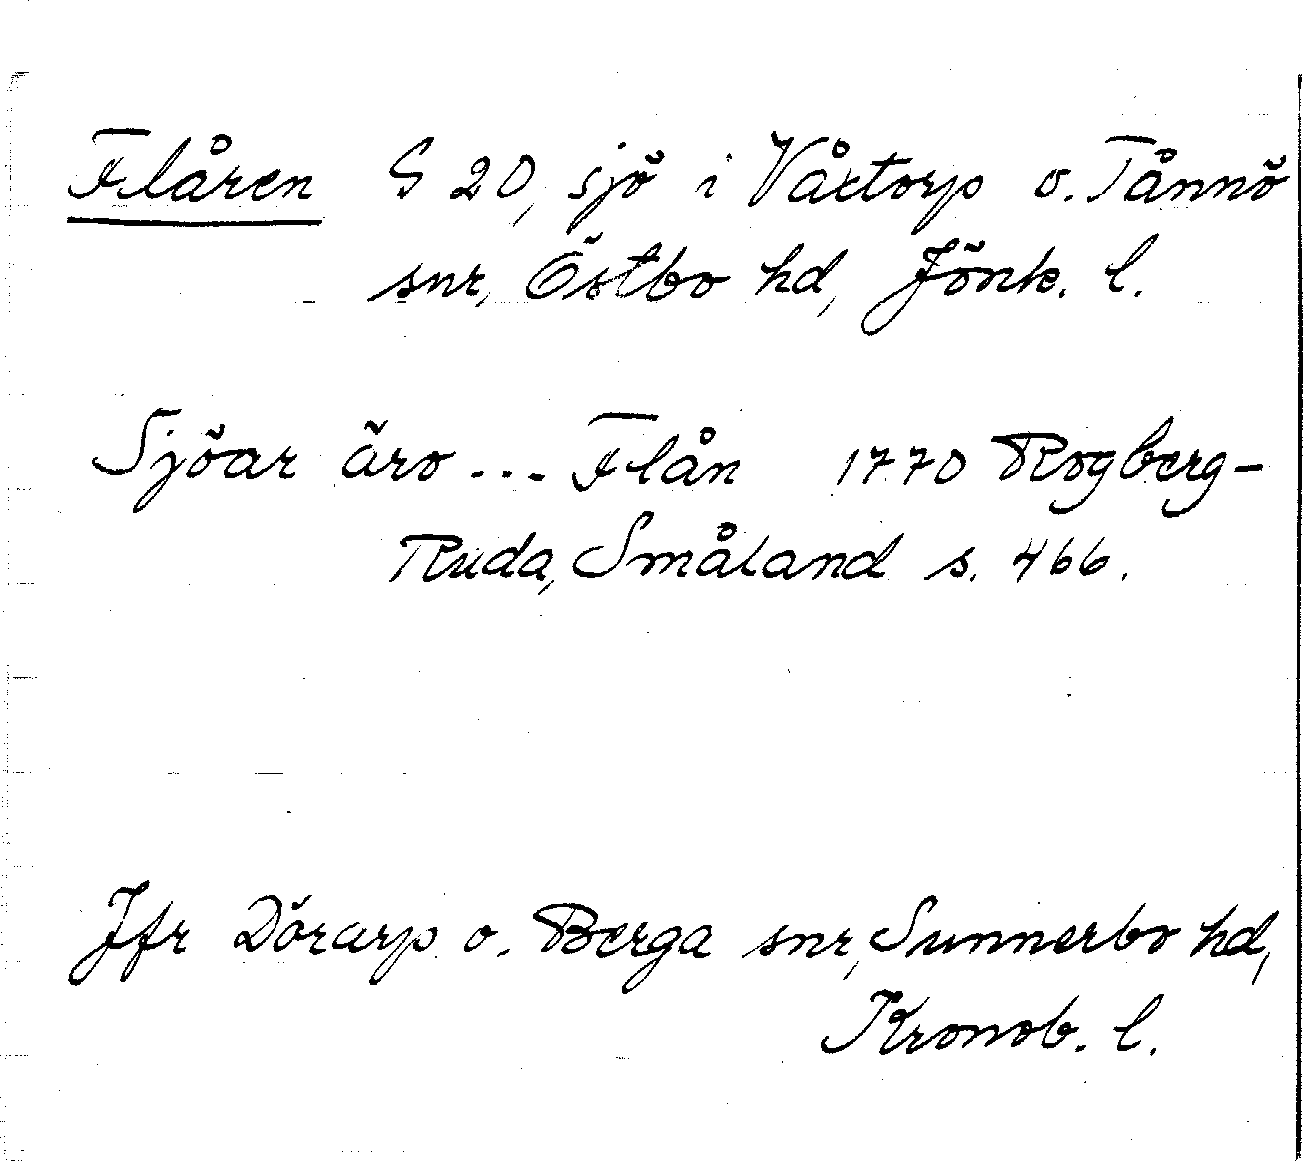 Flåren S 20, sjö i Våxtorp o. Tånnö
snr, Östbo hd, Jönk. l.
Sjöar äro ... Flån 1770 Rogberg-
Ruda, Småland s. 466.
Jfr Dörarp o. Berga snr, Sunnerbo hd,
Kronob. l.